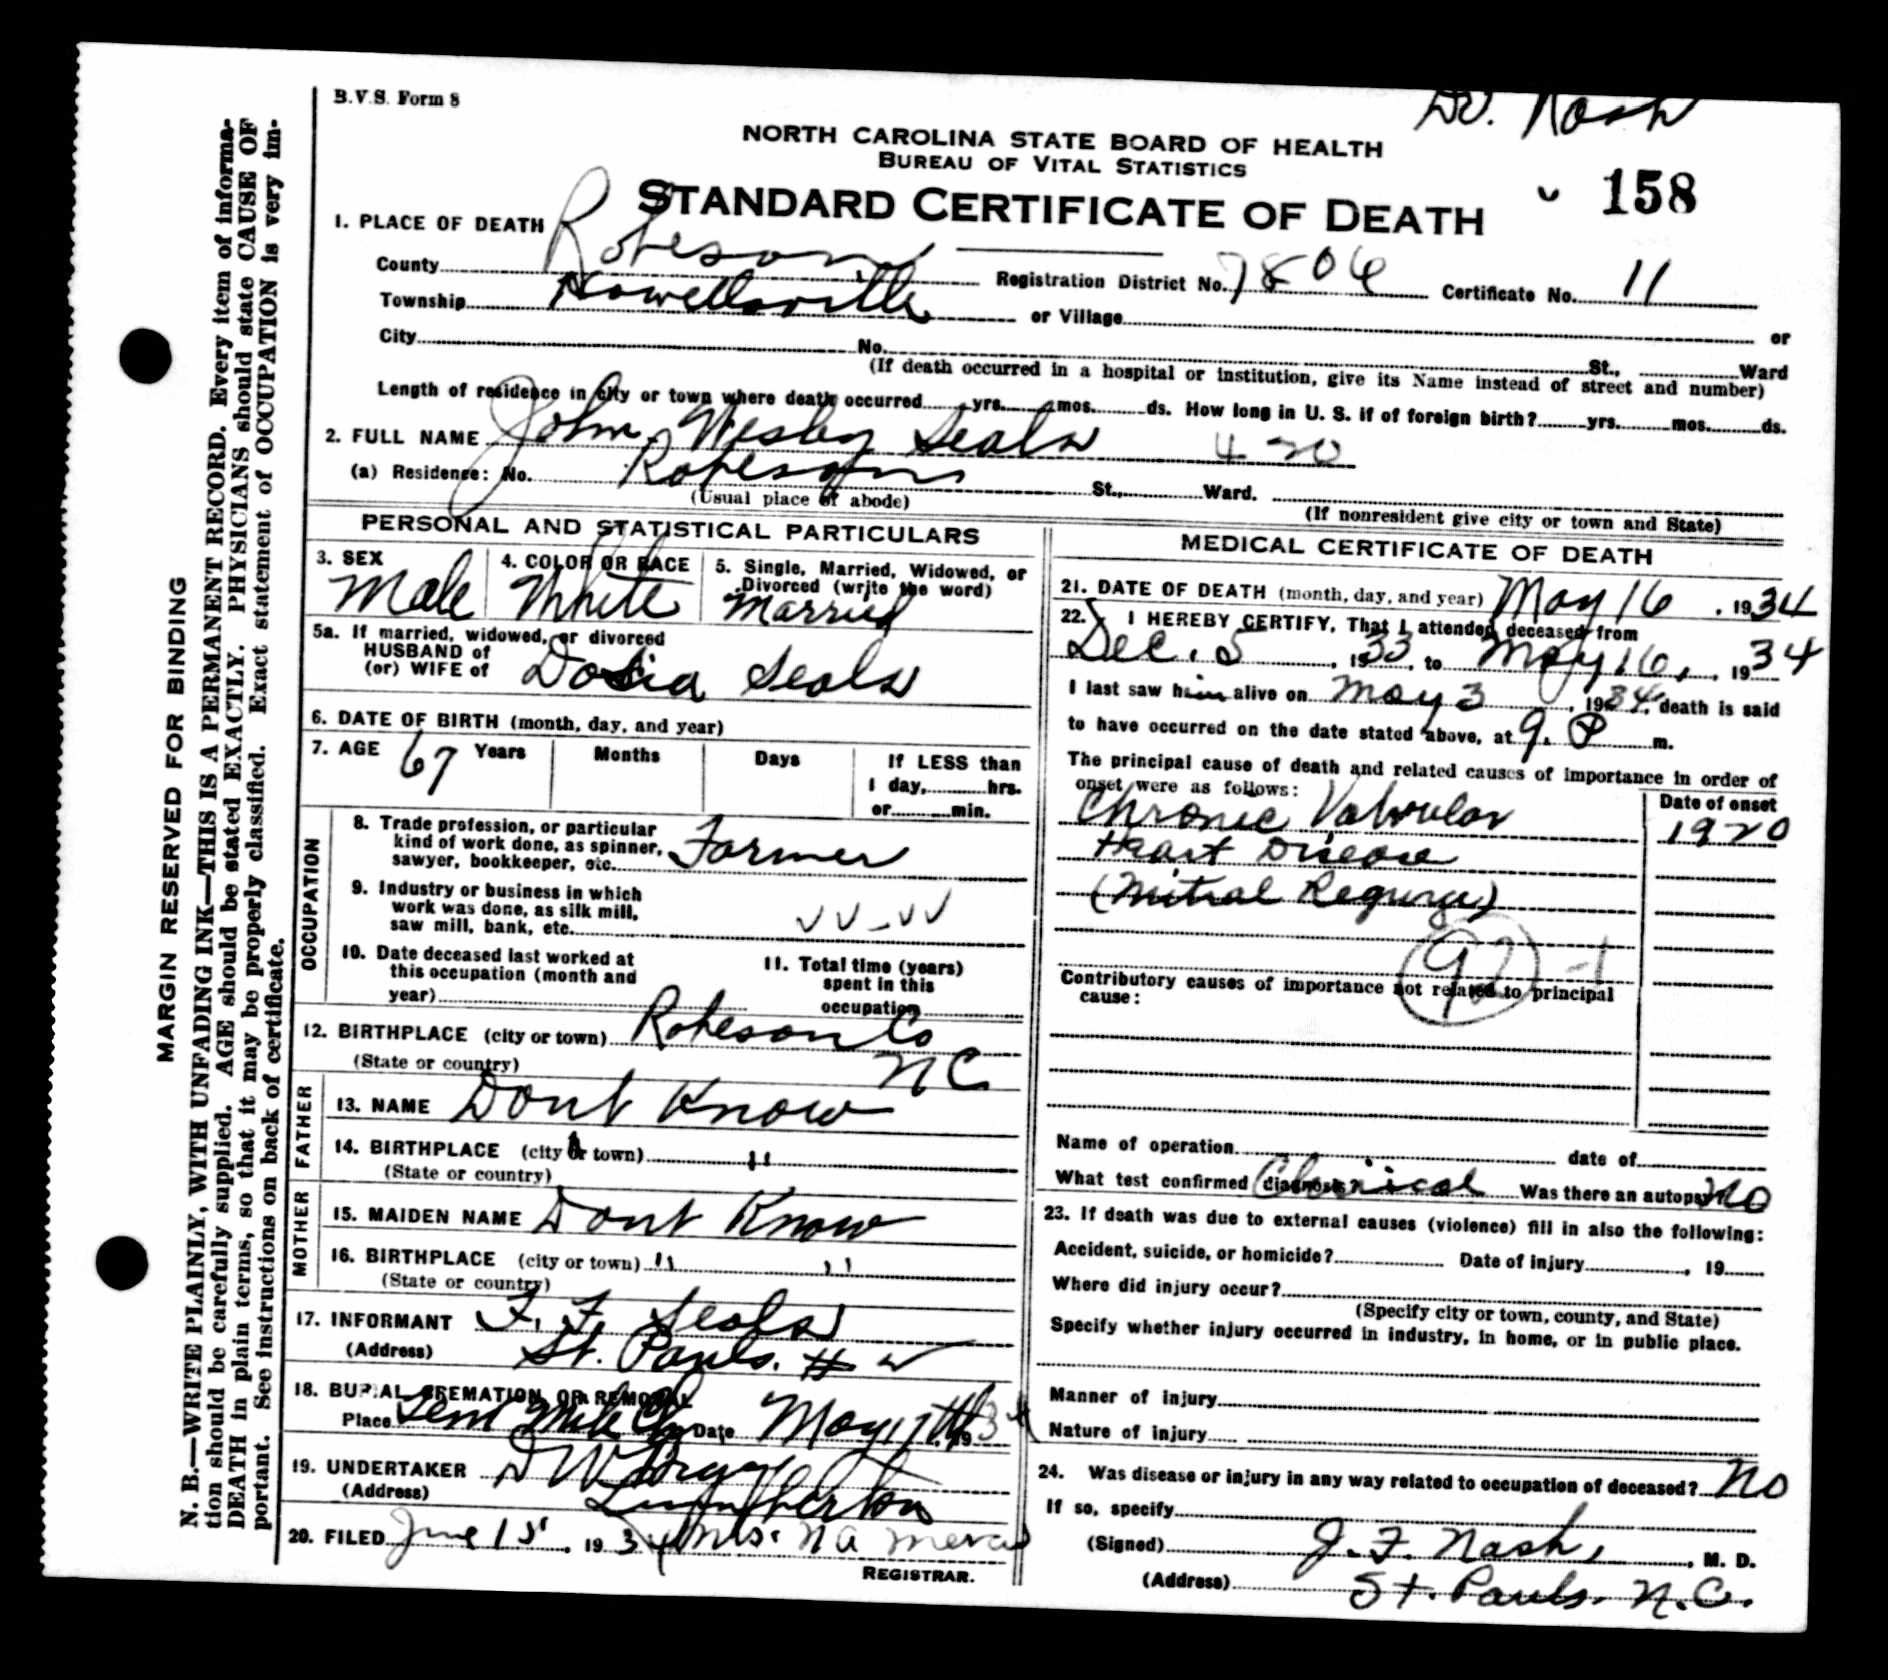 B.V.S. Form 8
Dr. Nash
NORTH CAROLINA STATE BOARD OF HEALTH
BUREAU OF VITAL STATISTICS
STANDARD CERTIFICATE OF DEATH
158
1. PLACE OF DEATH
County Robeson Registration District No. 7806 Certificate No. 11
Township Howellsville or Village or
City No. St., Ward
(If death occurred in a hospital or institution, give its Name instead of street and number)
Length of residence in city or town where death occurred yrs. mos. ds. How long in U. S. if of foreign birth? yrs. mos. ds.
2. FULL NAME John Wesley Seals 420
(a) Residence: No. Robeson St., Ward.
(Usual place of abode) (If nonresident give city or town and State)
PERSONAL AND STATISTICAL PARTICULARS
3. SEX
Male
4. COLOR OR RACE
White
5. Single, Married, Widowed, or
Divorced (write the word)
Married
5a. If married, widowed, or divorced
HUSBAND of
(or) WIFE of Dosia Seals
6. DATE OF BIRTH (month, day, and year)
7. AGE 67 Years Months Days If LESS than
1 day, hrs.
or min.
OCCUPATION
8. Trade profession, or particular
kind of work done, as spinner,
sawyer, bookkeeper, etc. Farmer
9. Industry or business in which
work was done, as silk mill,
saw mill, bank, etc.
10. Date deceased last worked at
this occupation (month and
year)
11. Total time (years)
spent in this
occupation
12. BIRTHPLACE (city or town) Robeson Co
(State or country) N C
FATHER
13. NAME Dont Know
14. BIRTHPLACE (city or town) "
(State or country)
MOTHER
15. MAIDEN NAME Dont Know
16. BIRTHPLACE (city or town) " "
(State or country)
17. INFORMANT F. F. Seals
(Address) St. Pauls.
18. BURIAL CREMATION OR REMOVAL
Place Tenn Mile Date May 17th 1934
19. UNDERTAKER D W
(Address) Lumberton
20. FILED June 15, 1934 Mrs. N A
REGISTRAR.
MEDICAL CERTIFICATE OF DEATH
21. DATE OF DEATH (month, day, and year) May 16, 1934
22. I HEREBY CERTIFY, That I attended deceased from
Dec. 5, 1933, to May 16, 1934
I last saw him alive on May 3, 1934, death is said
to have occurred on the date stated above, at 9. P m.
The principal cause of death and related causes of importance in order of
onset were as follows: Date of onset
Chronic Valvular 1920
Heart Disease
(Mitral Regurge)
92 -1
Contributory causes of importance not related to principal
cause:
Name of operation date of
What test confirmed diagnosis? Clinical Was there an autopsy? No
23. If death was due to external causes (violence) fill in also the following:
Accident, suicide, or homicide? Date of injury, 19
Where did injury occur?
(Specify city or town, county, and State)
Specify whether injury occurred in industry, in home, or in public place.
Manner of injury
Nature of injury
24. Was disease or injury in any way related to occupation of deceased? No
If so, specify
(Signed) J. F. Nash, M. D.
(Address) St. Pauls. N.C.
MARGIN RESERVED FOR BINDING
N. B.—WRITE PLAINLY, WITH UNFADING INK—THIS IS A PERMANENT RECORD. Every item of informa-
tion should be carefully supplied. AGE should be stated EXACTLY. PHYSICIANS should state CAUSE OF
DEATH in plain terms, so that it may be properly classified. Exact statement of OCCUPATION is very im-
portant. See instructions on back of certificate.